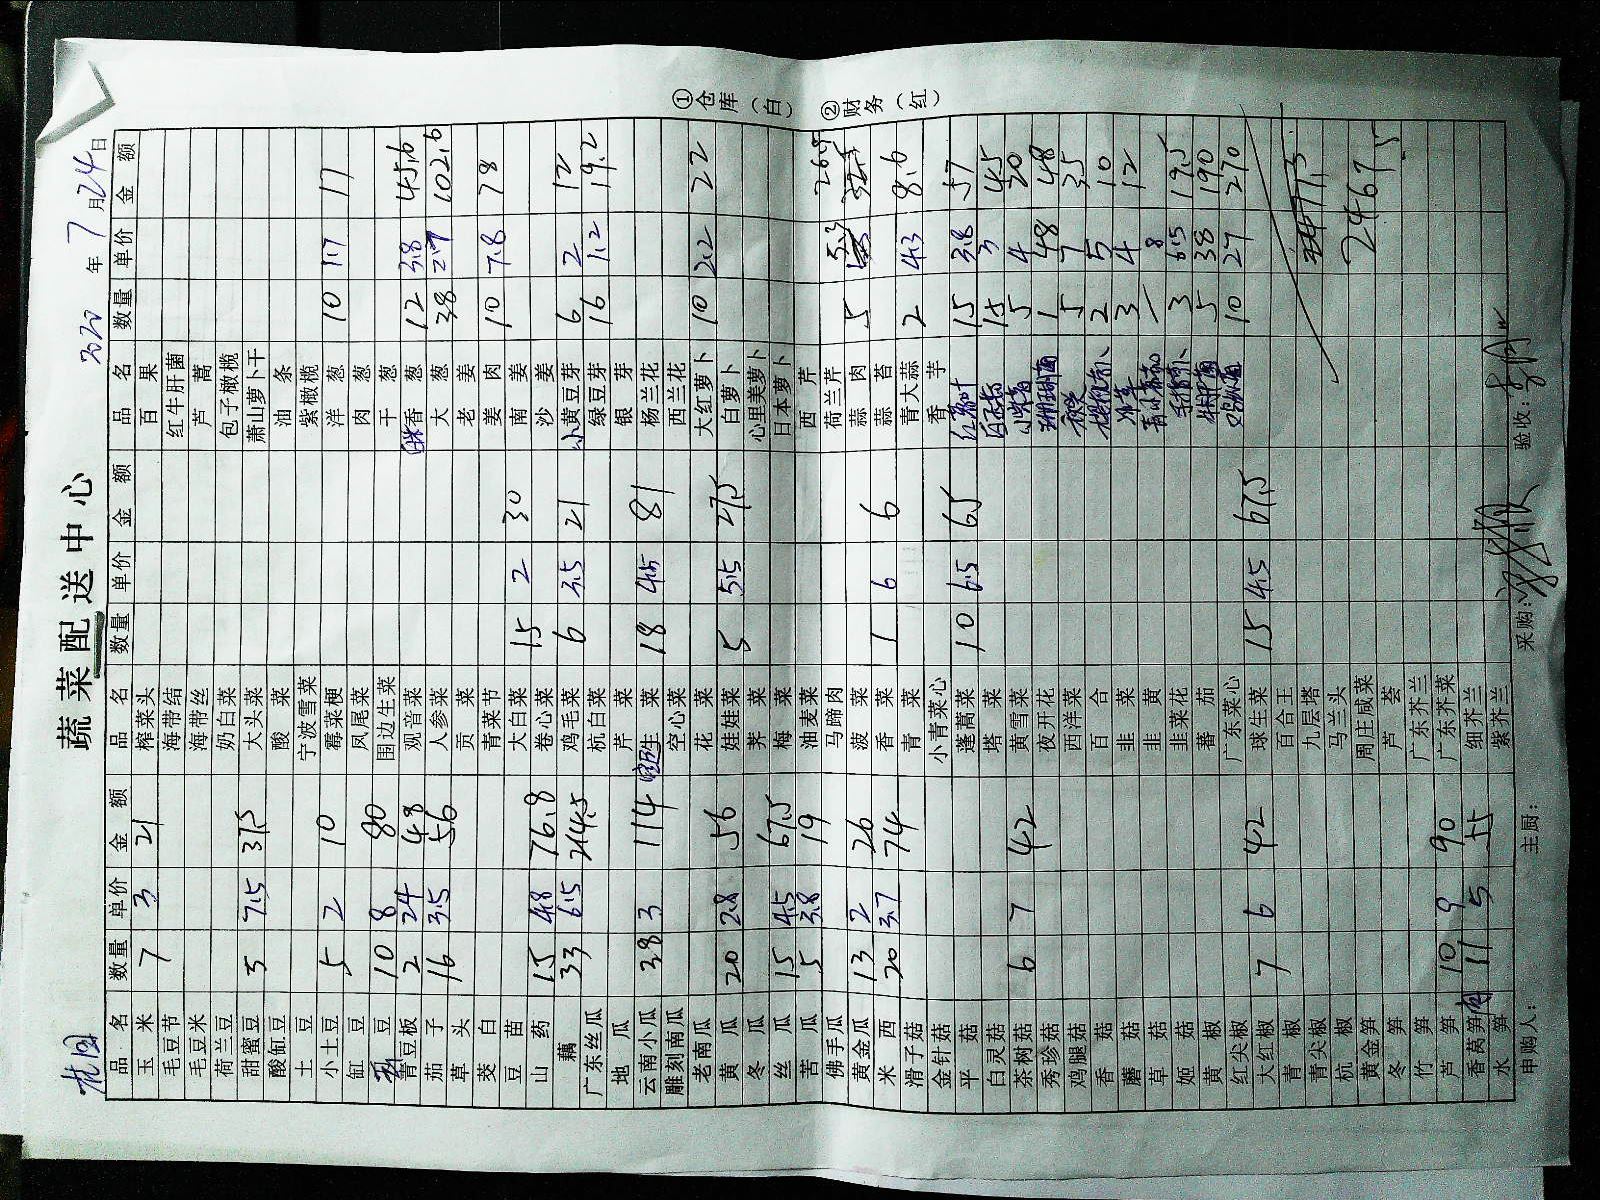 蔬菜配送中心
2020 年 7 月 24 日
品名 数量 单价 金额 品名 数量 单价 金额 品名 数量 单价 金额
玉米 7 3 21 榨菜头 百果
毛豆节 海带结 红牛肝菌
毛豆米 海带丝 芦蒿
荷兰豆 奶白菜 包子橄榄
甜蜜豆 5 7.5 37.5 大头菜 萧山萝卜干
酸缸豆 酸菜 油条
土豆 宁波雪菜 紫橄榄
小土豆 5 2 10 霉菜梗 洋葱 10 1.7 17
缸豆 凤尾菜 肉葱
豆 10 8 80 围边生菜 干葱
青豆板 2 24 48 观音菜 香葱 12 3.8 45.6
茄子 16 3.5 56 人参菜 大葱 38 2.7 102.6
草头 贡菜 老姜
茭白 青菜节 姜肉 10 7.8 78
豆苗 大白菜 15 2 30 南姜
山药 15 4.8 76.8 卷心菜 沙姜
藕 33 6.5 214.5 鸡毛菜 6 3.5 21 小黄豆芽 6 2 12
广东丝瓜 杭白菜 绿豆芽 16 1.2 19.2
地瓜 芹菜 银芽
云南小瓜 38 3 114 生菜 18 4.5 81 杨兰花
雕刻南瓜 空心菜 西兰花
老南瓜 花菜 大红萝卜 10 2.2 22
黄瓜 20 2.8 56 娃娃菜 5 5.5 27.5 白萝卜
冬瓜 荠菜 心里美萝卜
丝瓜 15 4.5 67.5 梅菜 日本萝卜
苦瓜 5 3.8 19 油麦菜 西芹
佛手瓜 马蹄肉 荷兰芹
黄金瓜 13 2 26 菠菜 蒜肉 5 5.3 26.5
米西 20 3.7 74 香菜 1 6 6 蒜苔
滑子菇 青菜 青大蒜 2 4.3 8.6
金针菇 小青菜心 香芋
平菇 蓬蒿菜 10 6.5 65 15 3.8 57
白灵菇 塔菜 15 3 45
茶树菇 6 7 42 黄雪菜 5 4 20
秀珍菇 夜开花 1 48 48
鸡腿菇 西洋菜 5 7 35
香菇 百合 2 5 10
蘑菇 韭菜 3 4 12
草菇 韭黄 8
姬菇 韭菜花 3 6.5 19.5
黄椒 蕃茄 5 38 190
红尖椒 广东菜心 10 27 270
大红椒 7 6 42 球生菜 15 4.5 67.5
青椒 百合王
青尖椒 九层塔
杭椒 马兰头
黄金笋 周庄咸菜 2467.5
冬笋 芦荟
竹笋 广东芥兰
芦笋 10 9 90 广东芥菜
香莴笋 11 5 55 细芥兰
水笋 紫芥兰
申购人： 主厨： 采购： 验收：
①仓库（白） ②财务（红）